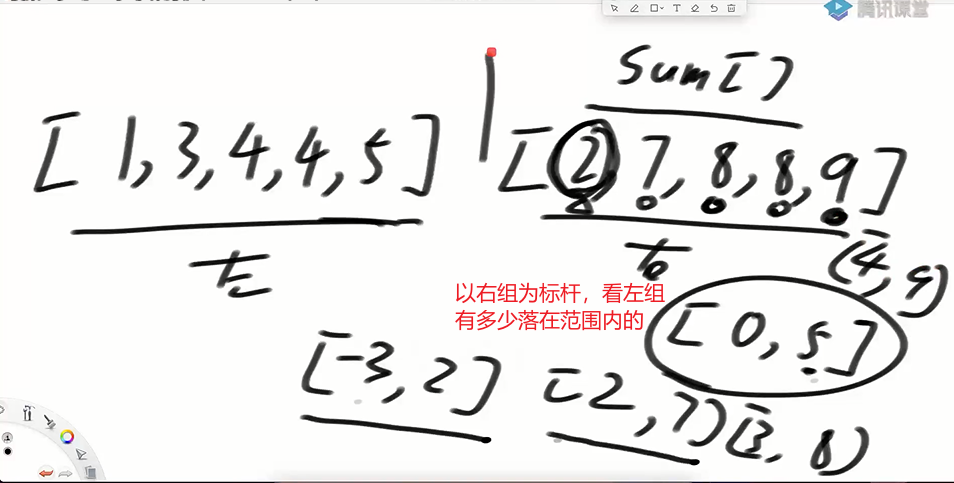 腾讯课堂
sum[]
[1,3,4,4,5] [2,7,8,8,9]
左 右
[4,9)
以右组为标杆，看左组
有多少落在范围内的
[0,5]
[-3,2] [2,7) [3,8)